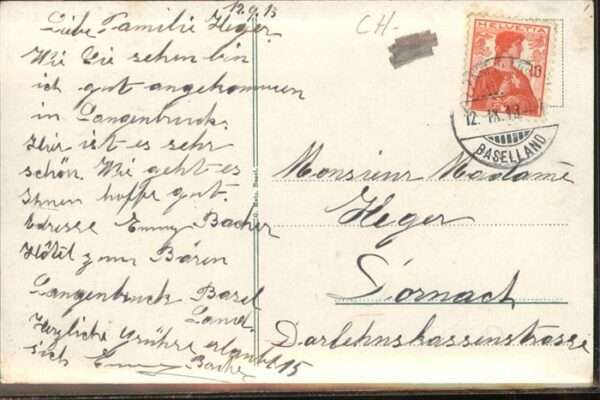 12.9.13
Liebe Familie Heger.
Wie Sie sehen bin
ich gut angekommen
in Langenbruck.
Hier ist es sehr
schön. Wie geht es
Ihnen hoffe gut.
Adresse Emmy Bacher
Hôtel zum Bären
Langenbruck Basel
Land.
Herzliche Grühse erlaubt
sich Emmy Bacher
CH-
HELVETIA
10
12. IX. 13
BASELLAND
Monsieur Madame
Heger
Dornach
Darlehnskassenstrasse
15